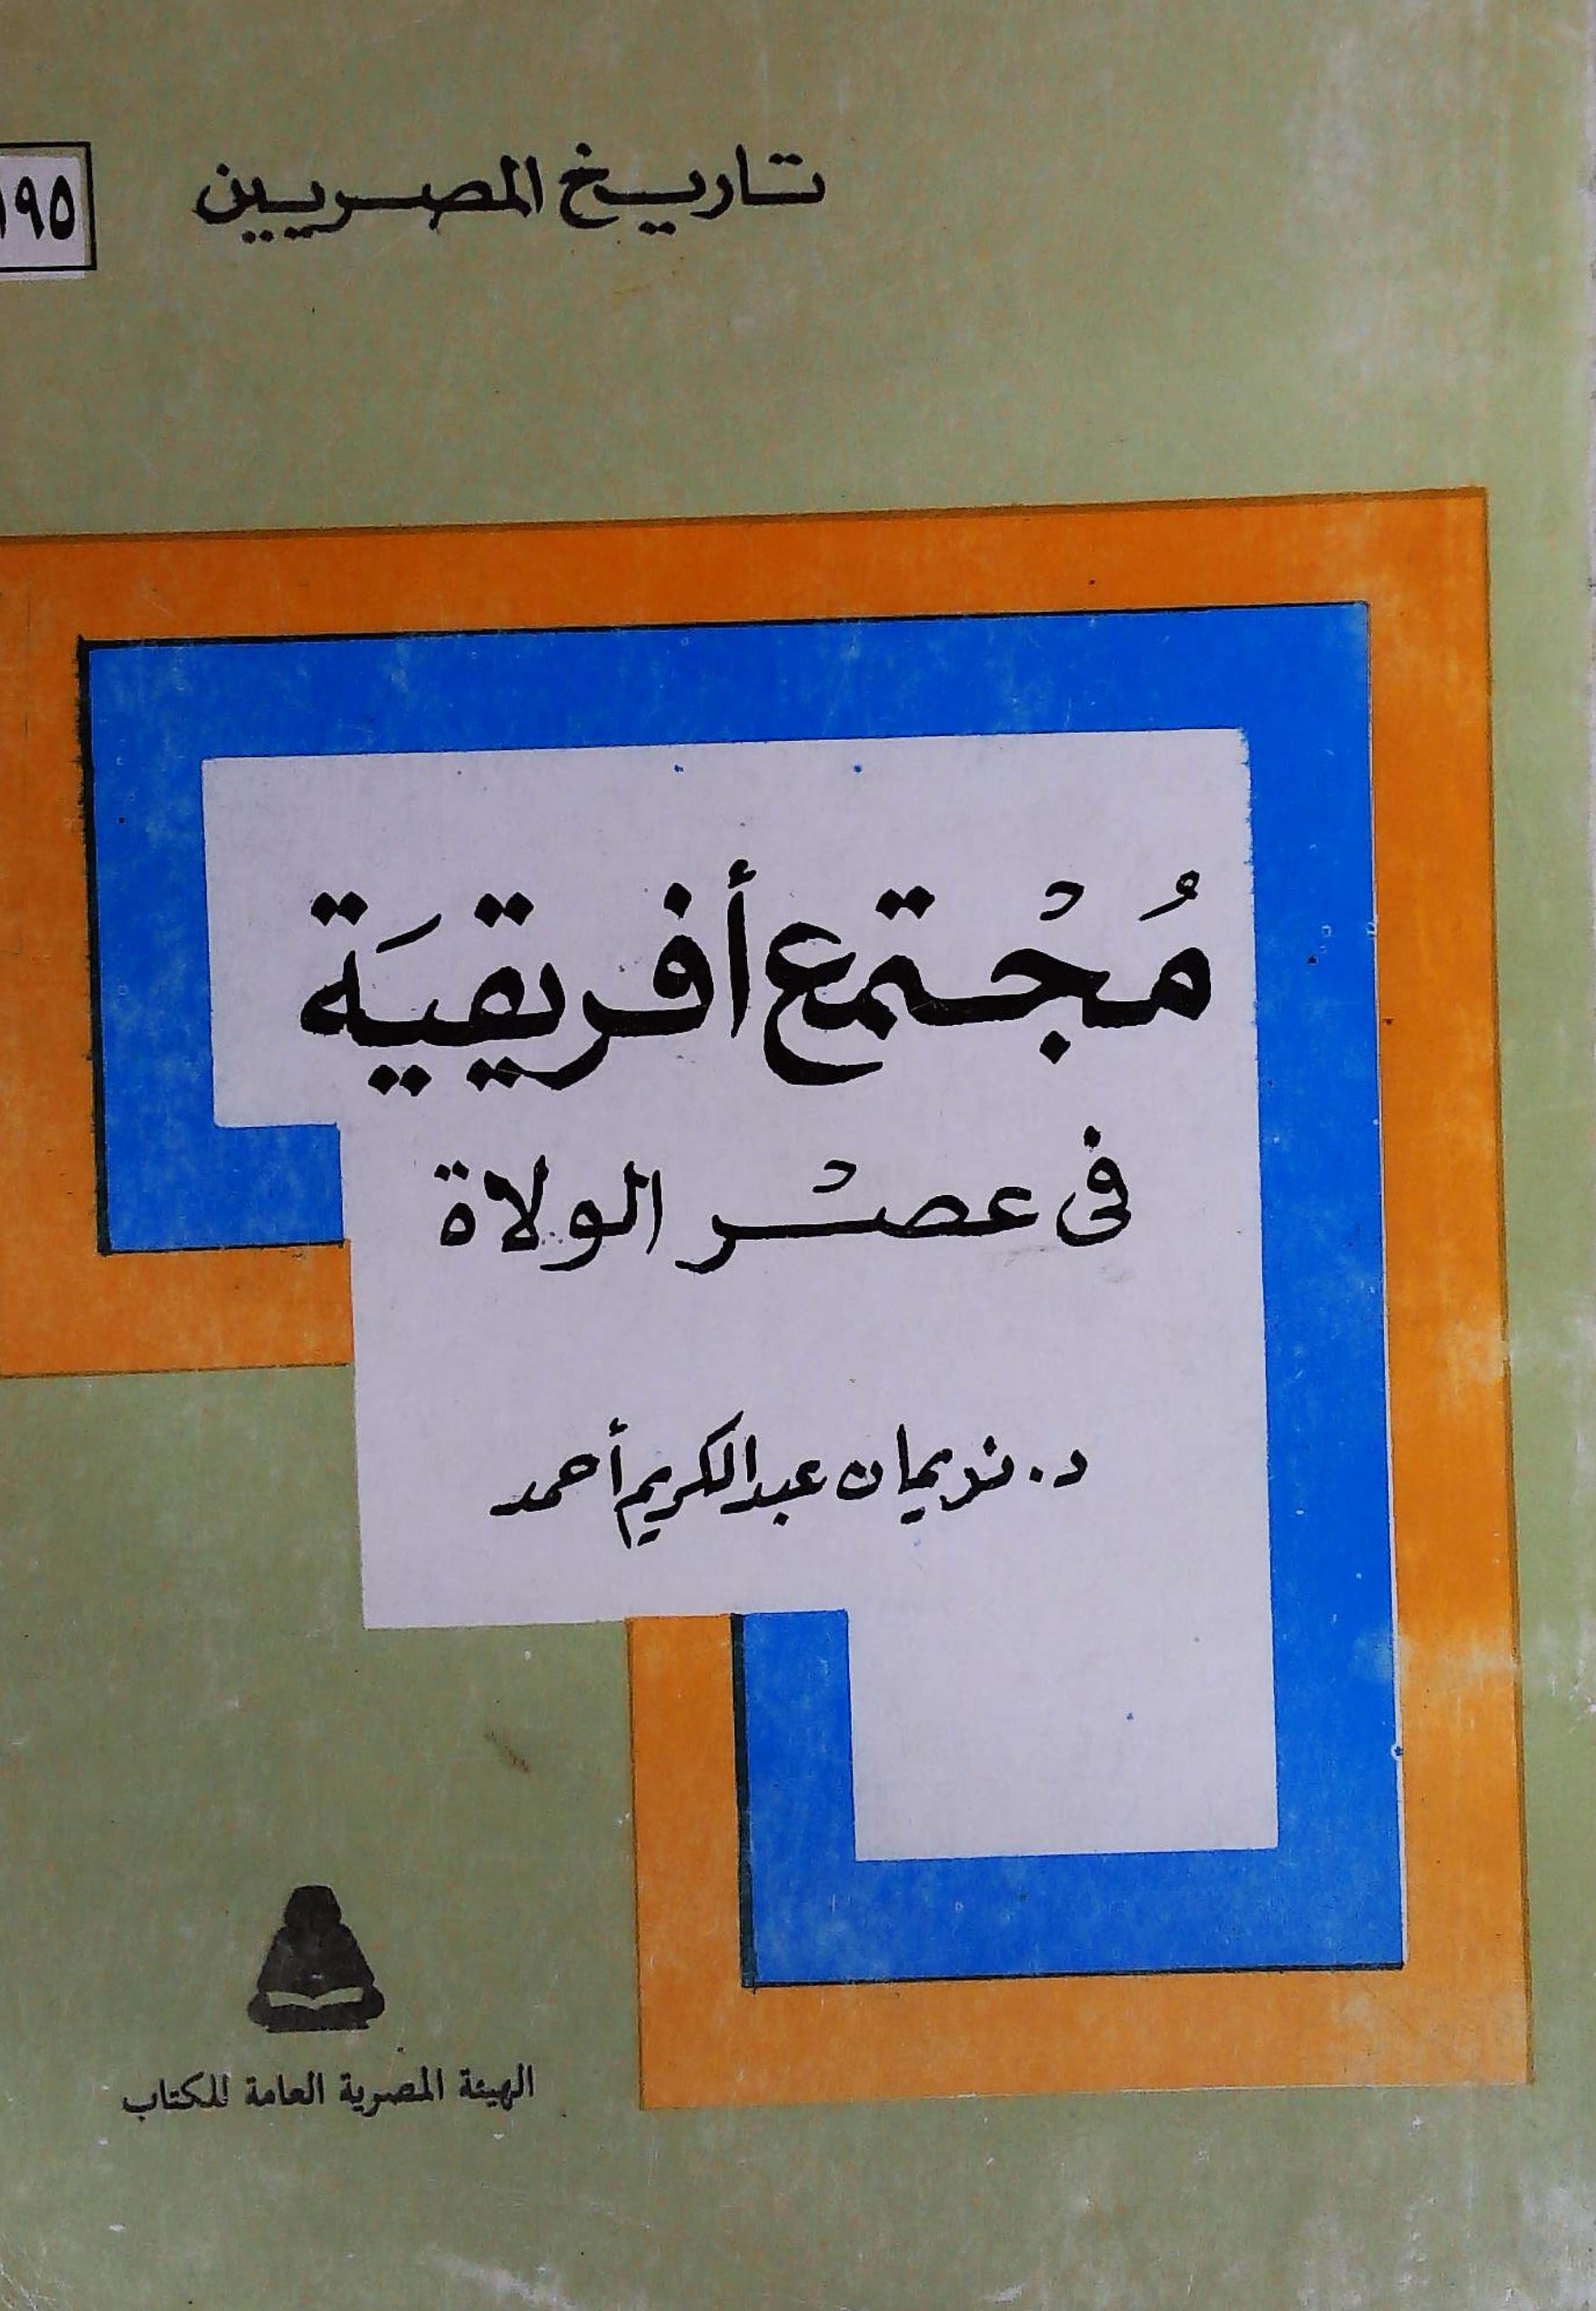 تاريخ المصريين
١٩٥
مُجْتمع أفريقيَة
فى عصْر الولاة
د. نريمان عبدالكريم أحمد
الهيئة المصرية العامة للكتاب